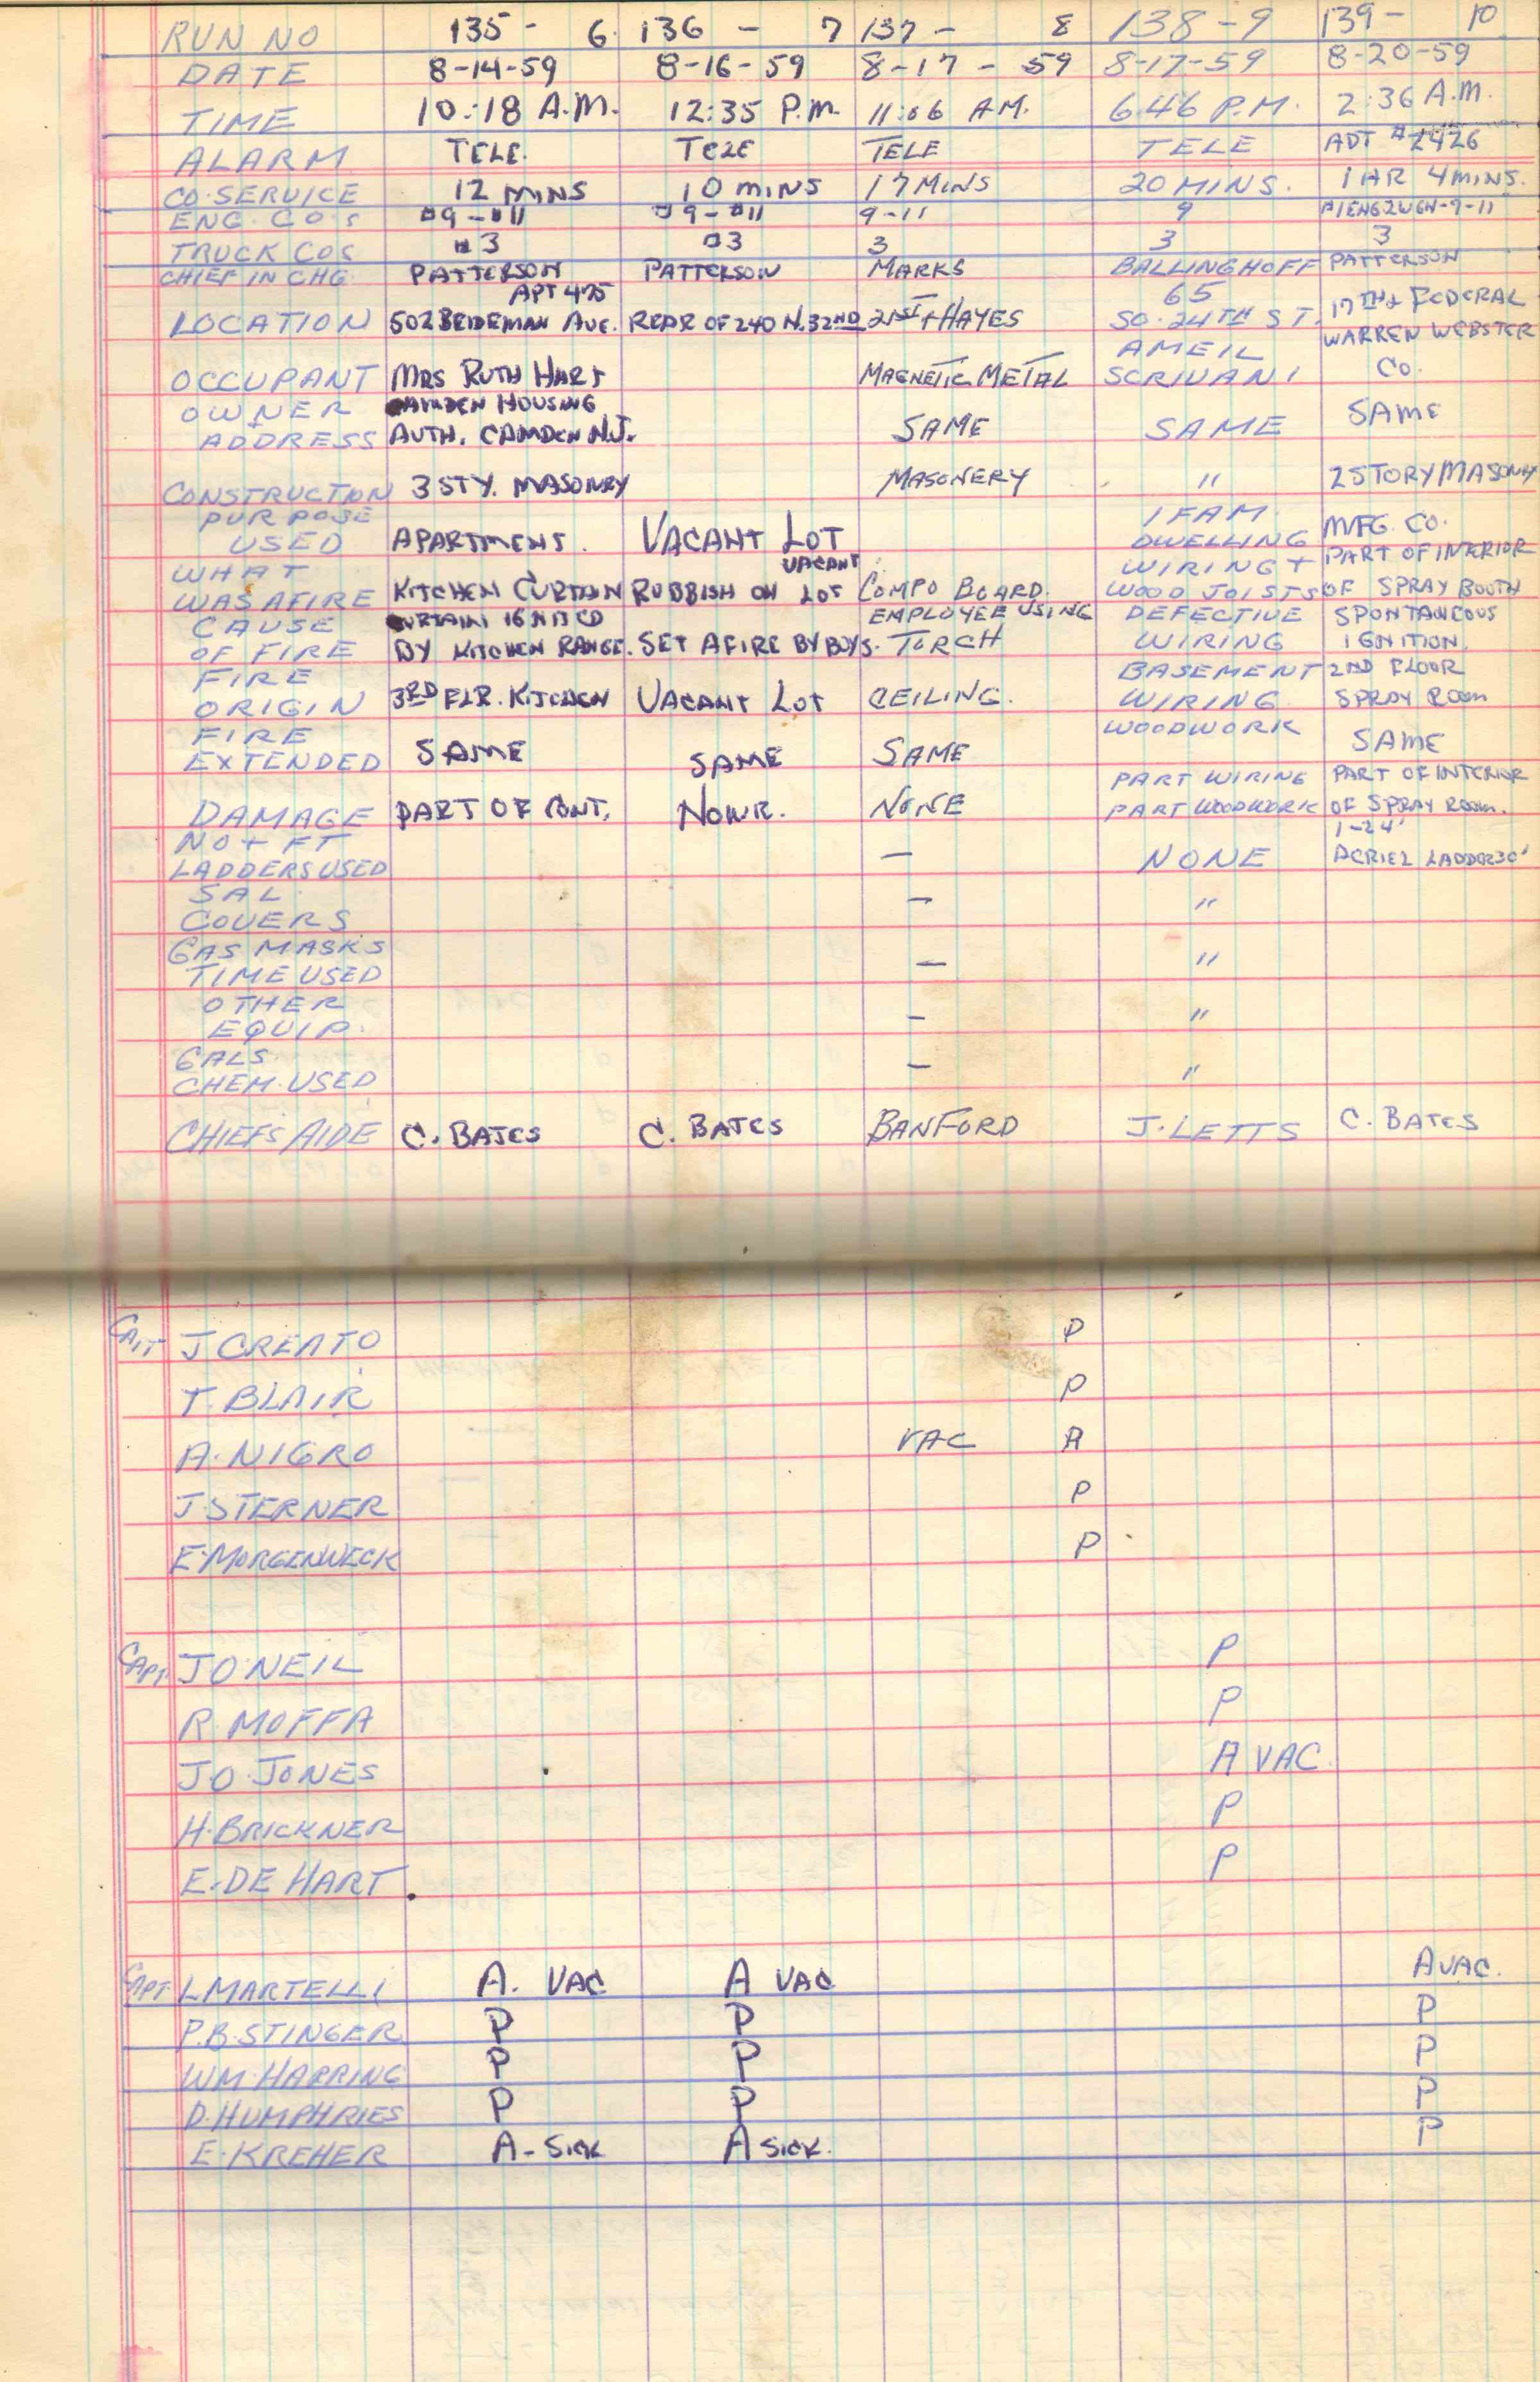 RUN NO 135 - 6 136 - 7 137 - 8 138-9 139- 10
DATE 8-14-59 8-16-59 8-17-59 8-17-59 8-20-59
TIME 10:18 A.M. 12:35 P.M. 11:06 AM. 6:46 P.M. 2:36 A.M.
ALARM TELE. TELE TELE TELE ADT #2426
CO. SERVICE 12 MINS 10 MINS 17 MINS 20 MINS. 1 HR 4 MINS.
ENG. CO'S #9-#11 #9-#11 9-11 9 #1 ENG 2 WGN-9-11
TRUCK COS #3 #3 3 3 3
CHIEF IN CHG PATTERSON PATTERSON MARKS BALLINGHOFF PATTERSON
APT 475 65
LOCATION 502 BEIDEMAN AVE. REAR OF 240 N. 32ND 21ST + HAYES SO. 24TH ST. 17TH + FEDERAL
AMEIL WARREN WEBSTER
OCCUPANT MRS RUTH HART MAGNETIC METAL SCRIVANI CO.
OWNER CAMDEN HOUSING
ADDRESS AUTH. CAMDEN N.J. SAME SAME SAME
CONSTRUCTION 3 STY. MASONRY MASONERY " 2 STORY MASONRY
PURPOSE 1 FAM.
USED APARTMENT. VACANT LOT DWELLING MFG. CO.
WHAT VACANT WIRING + PART OF INTERIOR
WAS AFIRE KITCHEN CURTAIN RUBBISH ON LOT COMPO BOARD. WOOD JOISTS OF SPRAY BOOTH
CAUSE CURTAIN IGNITED EMPLOYEE USING DEFECTIVE SPONTANEOUS
OF FIRE BY KITCHEN RANGE. SET AFIRE BY BOYS. TORCH WIRING IGNITION.
FIRE BASEMENT 2ND FLOOR
ORIGIN 3RD FLR. KITCHEN VACANT LOT CEILING. WIRING SPRAY ROOM
FIRE WOODWORK
EXTENDED SAME SAME SAME SAME
PART WIRING PART OF INTERIOR
DAMAGE PART OF CONT. NONE. NONE PART WOODWORK OF SPRAY ROOM.
NO + FT 1-24'
LADDERS USED — NONE AERIEL LADDER 30'
SAL
COVERS — "
GAS MASKS
TIME USED — "
OTHER
EQUIP. - "
GALS.
CHEM. USED — "
CHIEFS AIDE C. BATES C. BATES BANFORD J. LETTS C. BATES
CAPT J CREATO P
T. BLAIR P
A. NIGRO VAC A
J STERNER P
E. MORGENWECK P
CAPT. J O'NEIL P
R. MOFFA P
J.O. JONES A VAC.
H. BRICKNER P
E. DE HART. P
CAPT. L MARTELLI A. VAC A VAC A VAC.
P.B. STINGER P P P
WM. HARRING P P P
D. HUMPHRIES P P P
E. KREHER A-SICK A SICK. P